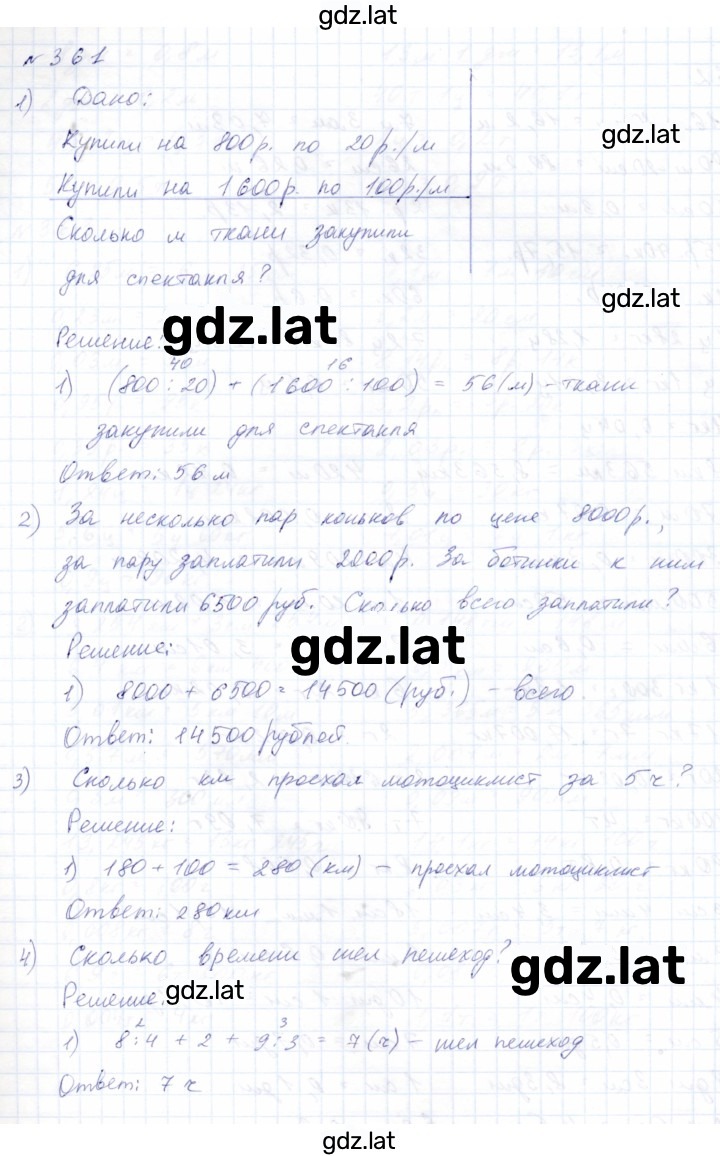 gdz.lat
№ 361
1) Дано:
Купили на 800р. по 20р./м
gdz.lat
Купили на 1600р. по 100р./м
Сколько м ткани закупили
для спектакля?
gdz.lat
Решение:
40 16
1) (800 : 20) + (1600 : 100) = 56(м) - ткани
закупили для спектакля
Ответ: 56 м
2) За несколько пар коньков по цене 8000р.,
за пару заплатили 2000р. За ботинки к ним
заплатили 6500 руб. Сколько всего заплатили?
gdz.lat
Решение:
1) 8000 + 6500 = 14500 (руб.) - всего.
Ответ: 14500 рублей
3) Сколько км проехал мотоциклист за 5ч?
Решение:
1) 180 + 100 = 280 (км) - проехал мотоциклист
Ответ: 280 км
4) Сколько времени шел пешеход?
gdz.lat
Решение.
gdz.lat
2 3
1) 8 : 4 + 2 + 9 : 3 = 7 (ч) - шел пешеход
Ответ: 7 ч
gdz.lat